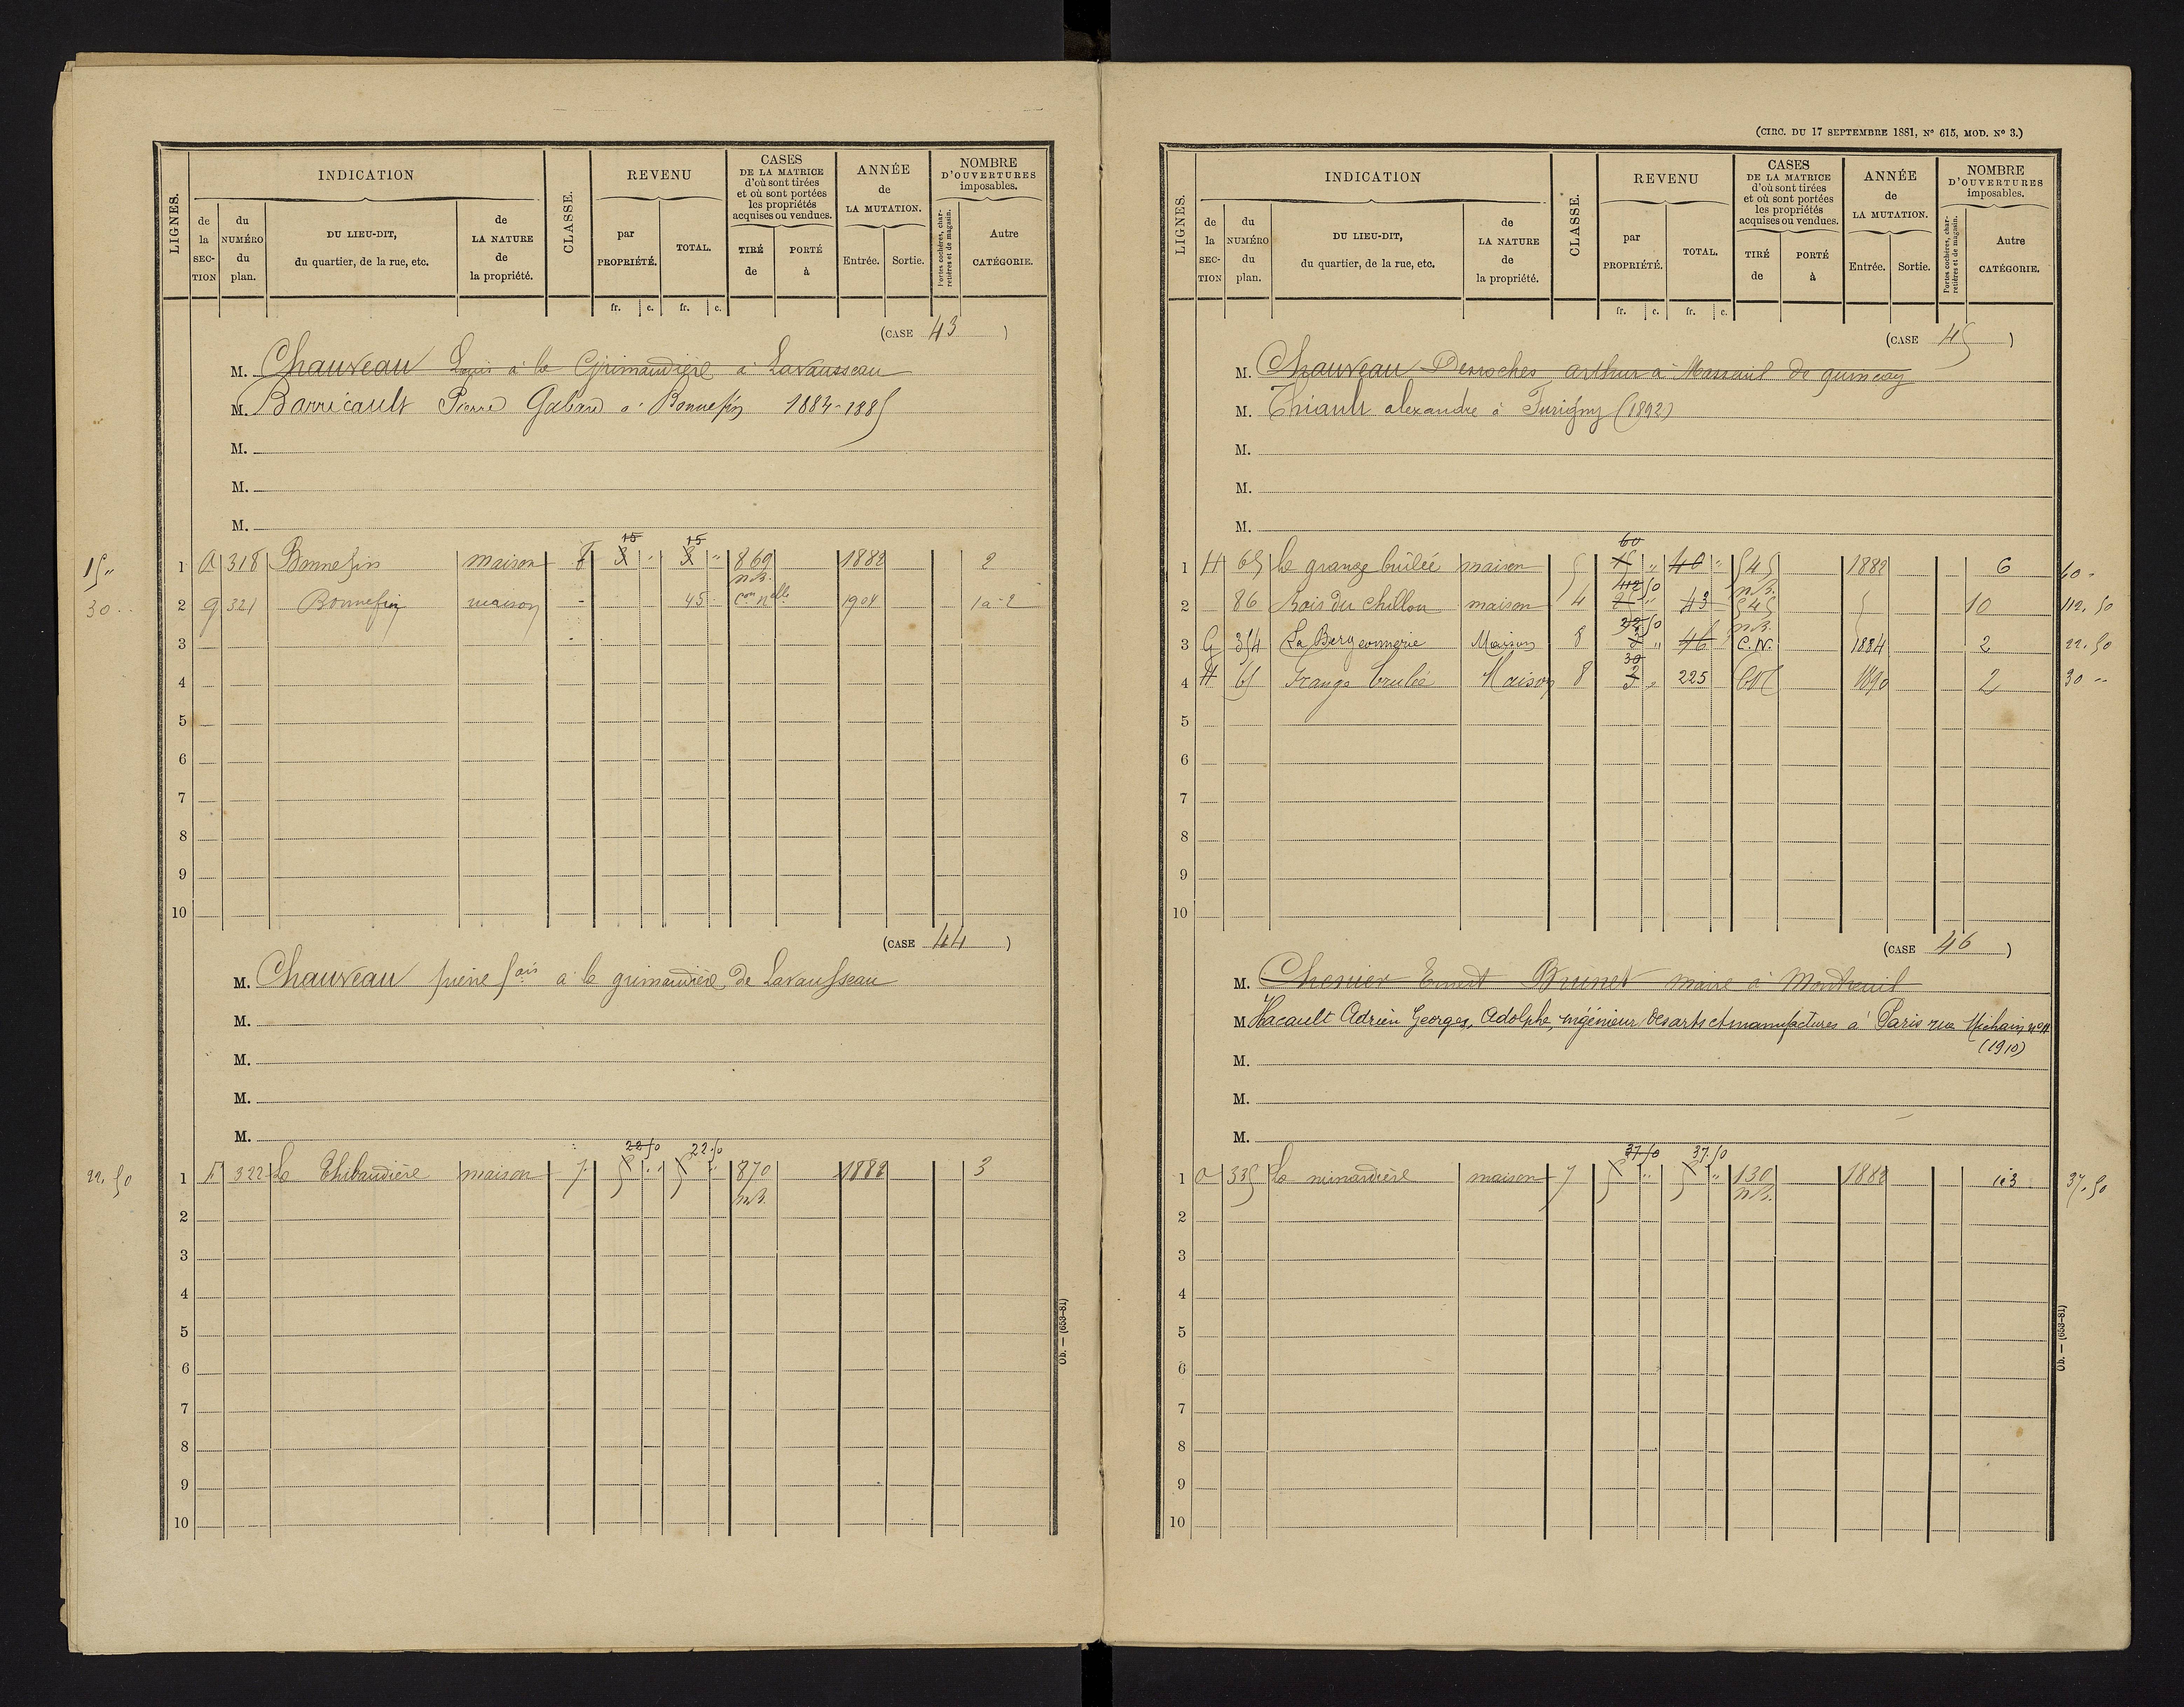 LIGNES.
INDICATION
de la SEC-TION
du NUMÉRO du plan.
DU LIEU-DIT, du quartier, de la rue, etc.
de LA NATURE de la propriété.
CLASSE.
REVENU
par PROPRIÉTÉ.
TOTAL.
CASES DE LA MATRICE d'où sont tirées et où sont portées les propriétés acquises ou vendues.
TIRÉ de
PORTÉ à
ANNÉE de LA MUTATION.
Entrée.
Sortie.
NOMBRE D'OUVERTURES imposables.
Portes cochères, charretières et de magasin.
Autre CATÉGORIE.
fr. c. fr. c.
(CASE 43)
M. Chauveau Louis à la Grimaudière à Lavausseau
M. Barricault Pierre Gabard à Bonnefin 1884-1885
M.
M.
M.
15 15
15 " 1 a 318 Bonnefin maison 8 3 " 3 " 869 1882 2
n.B.
30 " 2 g 321 Bonnefin maison - 45 - Con nelle 1904 1a-2
3
4
5
6
7
8
9
10
(CASE 44)
M. Chauveau pierre fois à la grimaudière de Lavausseau
M.
M.
M.
M.
22 50 22 50
22.50 1 F 322 La Thibaudière maison 7 5 " 5 " 870 1882 3
n.B.
2
3
4
5
6
7
8
9
10
Ob. — (653-81)
(CIRC. DU 17 SEPTEMBRE 1881, N° 615, MOD. N° 3.)
LIGNES.
INDICATION
de la SEC-TION
du NUMÉRO du plan.
DU LIEU-DIT, du quartier, de la rue, etc.
de LA NATURE de la propriété.
CLASSE.
REVENU
par PROPRIÉTÉ.
TOTAL.
CASES DE LA MATRICE d'où sont tirées et où sont portées les propriétés acquises ou vendues.
TIRÉ de
PORTÉ à
ANNÉE de LA MUTATION.
Entrée.
Sortie.
NOMBRE D'OUVERTURES imposables.
Portes cochères, charretières et de magasin.
Autre CATÉGORIE.
fr. c. fr. c.
(CASE 45)
M. Chauveau Desroches arthur à Masseuil de quincay
M. Thiault alexandre à Furigny (1892)
M.
M.
M.
60
1 H 65 La grange brûlée maison 5 15 " 40 " 545 1882 6 60 "
112 50 n.B.
2 86 Bois du chillou maison 4 25 " 43 545 10 112.50
22 50 n.B.
3 G 354 La Bergeonnerie Maison 8 3 " 46 C.N. 1884 2 22.50
30
4 H 65 Grange brulée Maison 8 3 " 225 CN 1890 2 30 "
5
6
7
8
9
10
(CASE 46)
M. Chenier Ernest Brunet maire à Montreuil
M. Hacault Adrien Georges, Adolphe, ingénieur des arts et manufactures à Paris rue Méchain, n°
(1910)
M.
M.
M.
37.50 37.50
1 a 335 La minaudière maison 7 5 " 5 " 130 1882 3 37.50
n.B.
2
3
4
5
6
7
8
9
10
Ob. — (653-81)